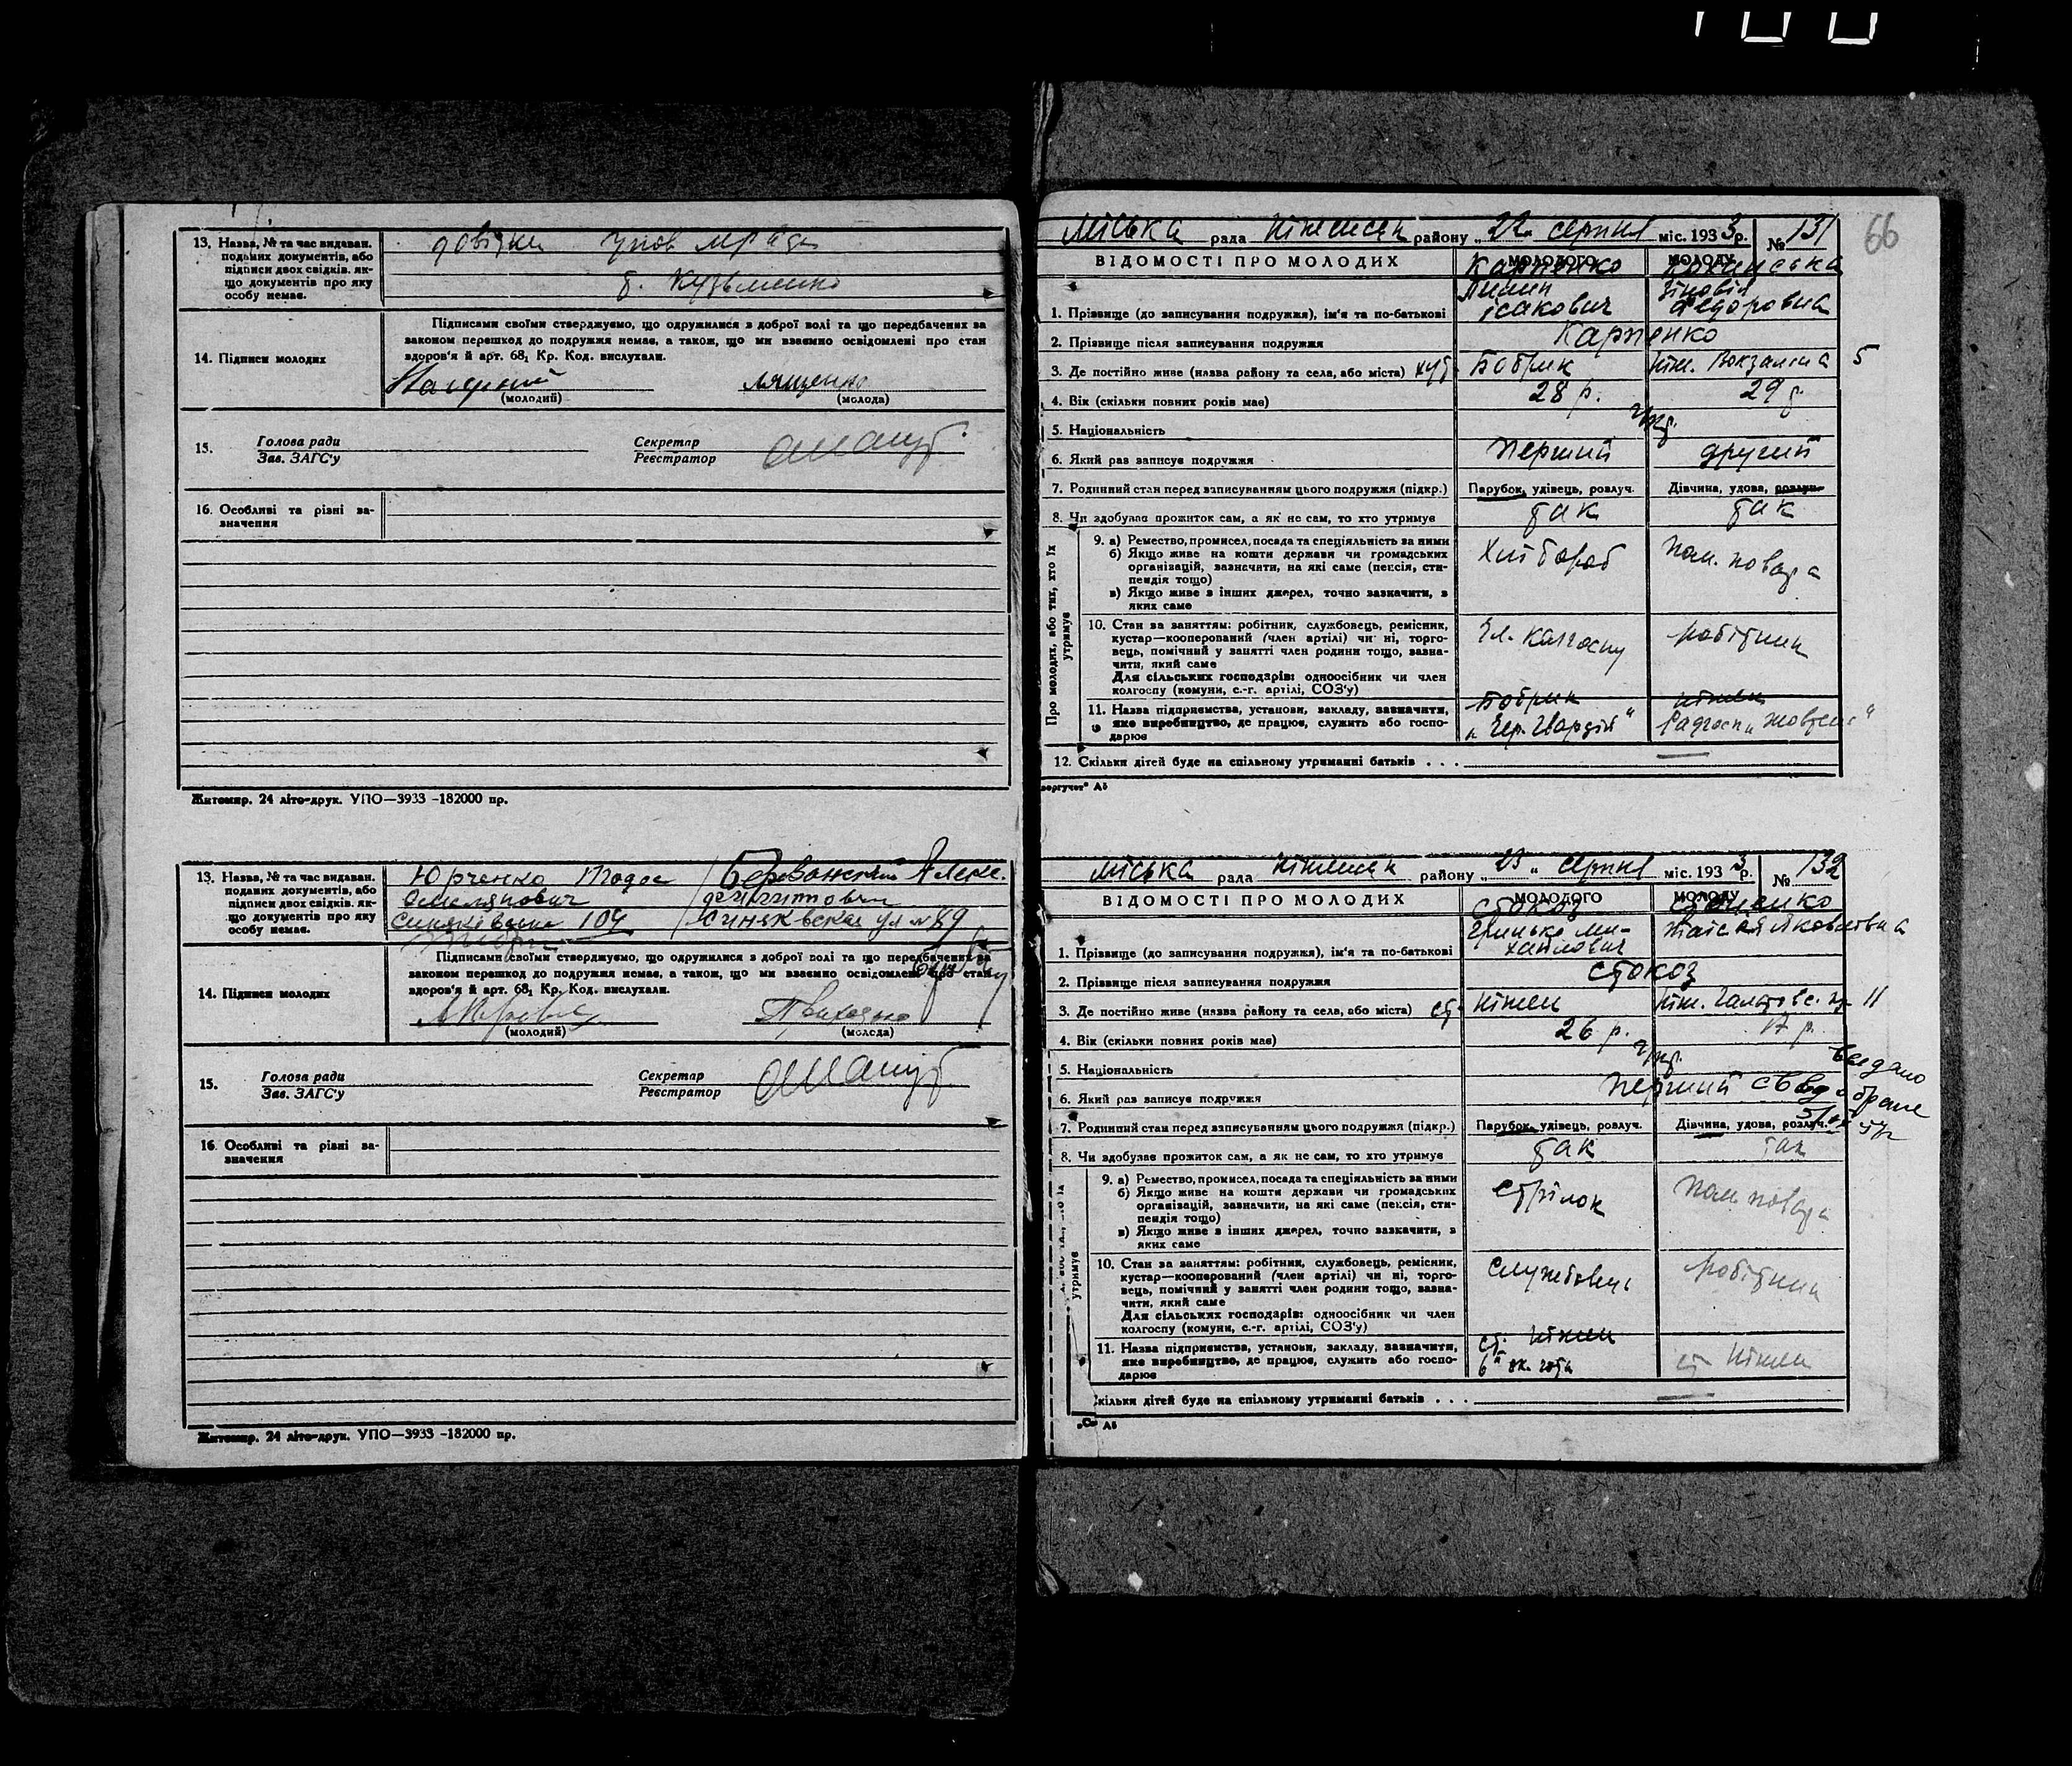 13. Назва, № та час видаван.
поданих документів, або
підписи двох свідків. як-
що документів про яку
особу немає.
довідки
Кузьменко
14. Підписи молодих
Підписами своїми стверджуємо, що одружилися з доброї волі та що передбачених за
законом перешкод до подружжя немає, а також, що ми взаємно освідомлені про стан
здоров'я й арт. 68₁ Кр. Код. вислухали.
Лященко
(молодий) (молода)
15.
Голова ради
Зав. ЗАГС'у
Секретар
Реєстратор
16. Особливі та різні за-
значення
Житомир. 24 літо-друк. УПО—3933 -182000 пр.
13. Назва, № та час видаван.
поданих документів, або
підписи двох свідків. як-
що документів про яку
особу немає.
Юрченко Тодос
Омелянович
104
ул № 89
14. Підписи молодих
Підписами своїми стверджуємо, що одружилися з доброї волі та що передбачених за
законом перешкод до подружжя немає, а також, що ми взаємно освідомлені про стан
здоров'я й арт. 68₁ Кр. Код. вислухали.
(молодий) (молода)
15.
Голова ради
Зав. ЗАГС'у
Секретар
Реєстратор
16. Особливі та різні за-
значення
Житомир. 24 літо-друк. УПО—3933 -182000 пр.
66
Міська рада Ніженськ району „22" серпня міс. 1933р. № 131
ВІДОМОСТІ ПРО МОЛОДИХ МОЛОДОГО МОЛОДУ
Карпенко
1. Прізвище (до записування подружжя), ім'я та по-батькові
Ісакович Федоровна
2. Прізвище після записування подружжя Карпенко
3. Де постійно живе (назва району та села, або міста) хут. Бобрик Ніж. Вокзальна 5
4. Вік (скільки повних років має) 28 р. 29 р.
5. Національність укр.
6. Який раз записує подружжя Перший другий
7. Родинний стан перед записуванням цього подружжя (підкр.) Парубок, удівець, розлуч. Дівчина, удова, розлуч.
8. Чи здобував прожиток сам, а як не сам, то хто утримує так так
Про молодих, або тих, хто їх утримує
9. а) Ремество, промисел, посада та спеціяльність за ними
б) Якщо живе на кошти держави чи громадських
організацій, зазначити, на які саме (пенсія, сти-
пендія тощо)
в) Якщо живе з інших джерел, точно зазначити, з
яких саме
Хлібороб Пом. повара
10. Стан за заняттям: робітник, службовець, ремісник,
кустар—кооперований (член артілі) чи ні, торго-
вець, помічний у занятті член родини тощо, зазна-
чити, який саме
Для сільських господарів: одноосібник чи член
колгоспу (комуни, с.-г. артілі, СОЗ'у)
Чл. колгоспу робітник
11. Назва підприємства, установи, закладу, зазначити,
яке виробництво, де працює, служить або госпо-
дарює
Бобрик Ніжен
„Чер. Гвардія" Радгосп „Жовтень"
12. Скільки дітей буде на спільному утриманні батьків . . .
Міська рада Ніженськ району „23" серпня міс. 1933р. № 132
ВІДОМОСТІ ПРО МОЛОДИХ МОЛОДОГО МОЛОДУ
Стокоз
Грицько Ми-
1. Прізвище (до записування подружжя), ім'я та по-батькові хайлович
2. Прізвище після записування подружжя Стокоз
3. Де постійно живе (назва району та села, або міста) ст. Ніжен 11
4. Вік (скільки повних років має) 26 р. 17 р.
5. Національність укр.
6. Який раз записує подружжя перший
Видано
св во о браке
7. Родинний стан перед записуванням цього подружжя (підкр.) Парубок, удівець, розлуч. Дівчина, удова, розлуч.
8. Чи здобував прожиток сам, а як не сам, то хто утримує так так
утримує
9. а) Ремество, промисел, посада та спеціяльність за ними
б) Якщо живе на кошти держави чи громадських
організацій, зазначити, на які саме (пенсія, сти-
пендія тощо)
в) Якщо живе з інших джерел, точно зазначити, з
яких саме
Стрілок Пом повара
10. Стан за заняттям: робітник, службовець, ремісник,
кустар—кооперований (член артілі) чи ні, торго-
вець, помічний у занятті член родини тощо, зазна-
чити, який саме
Для сільських господарів: одноосібник чи член
колгоспу (комуни, с.-г. артілі, СОЗ'у)
Службовець робітник
11. Назва підприємства, установи, закладу, зазначити,
яке виробництво, де працює, служить або госпо-
дарює
ст. Ніжен
ст Ніжен
Скільки дітей буде на спільному утриманні батьків . . .